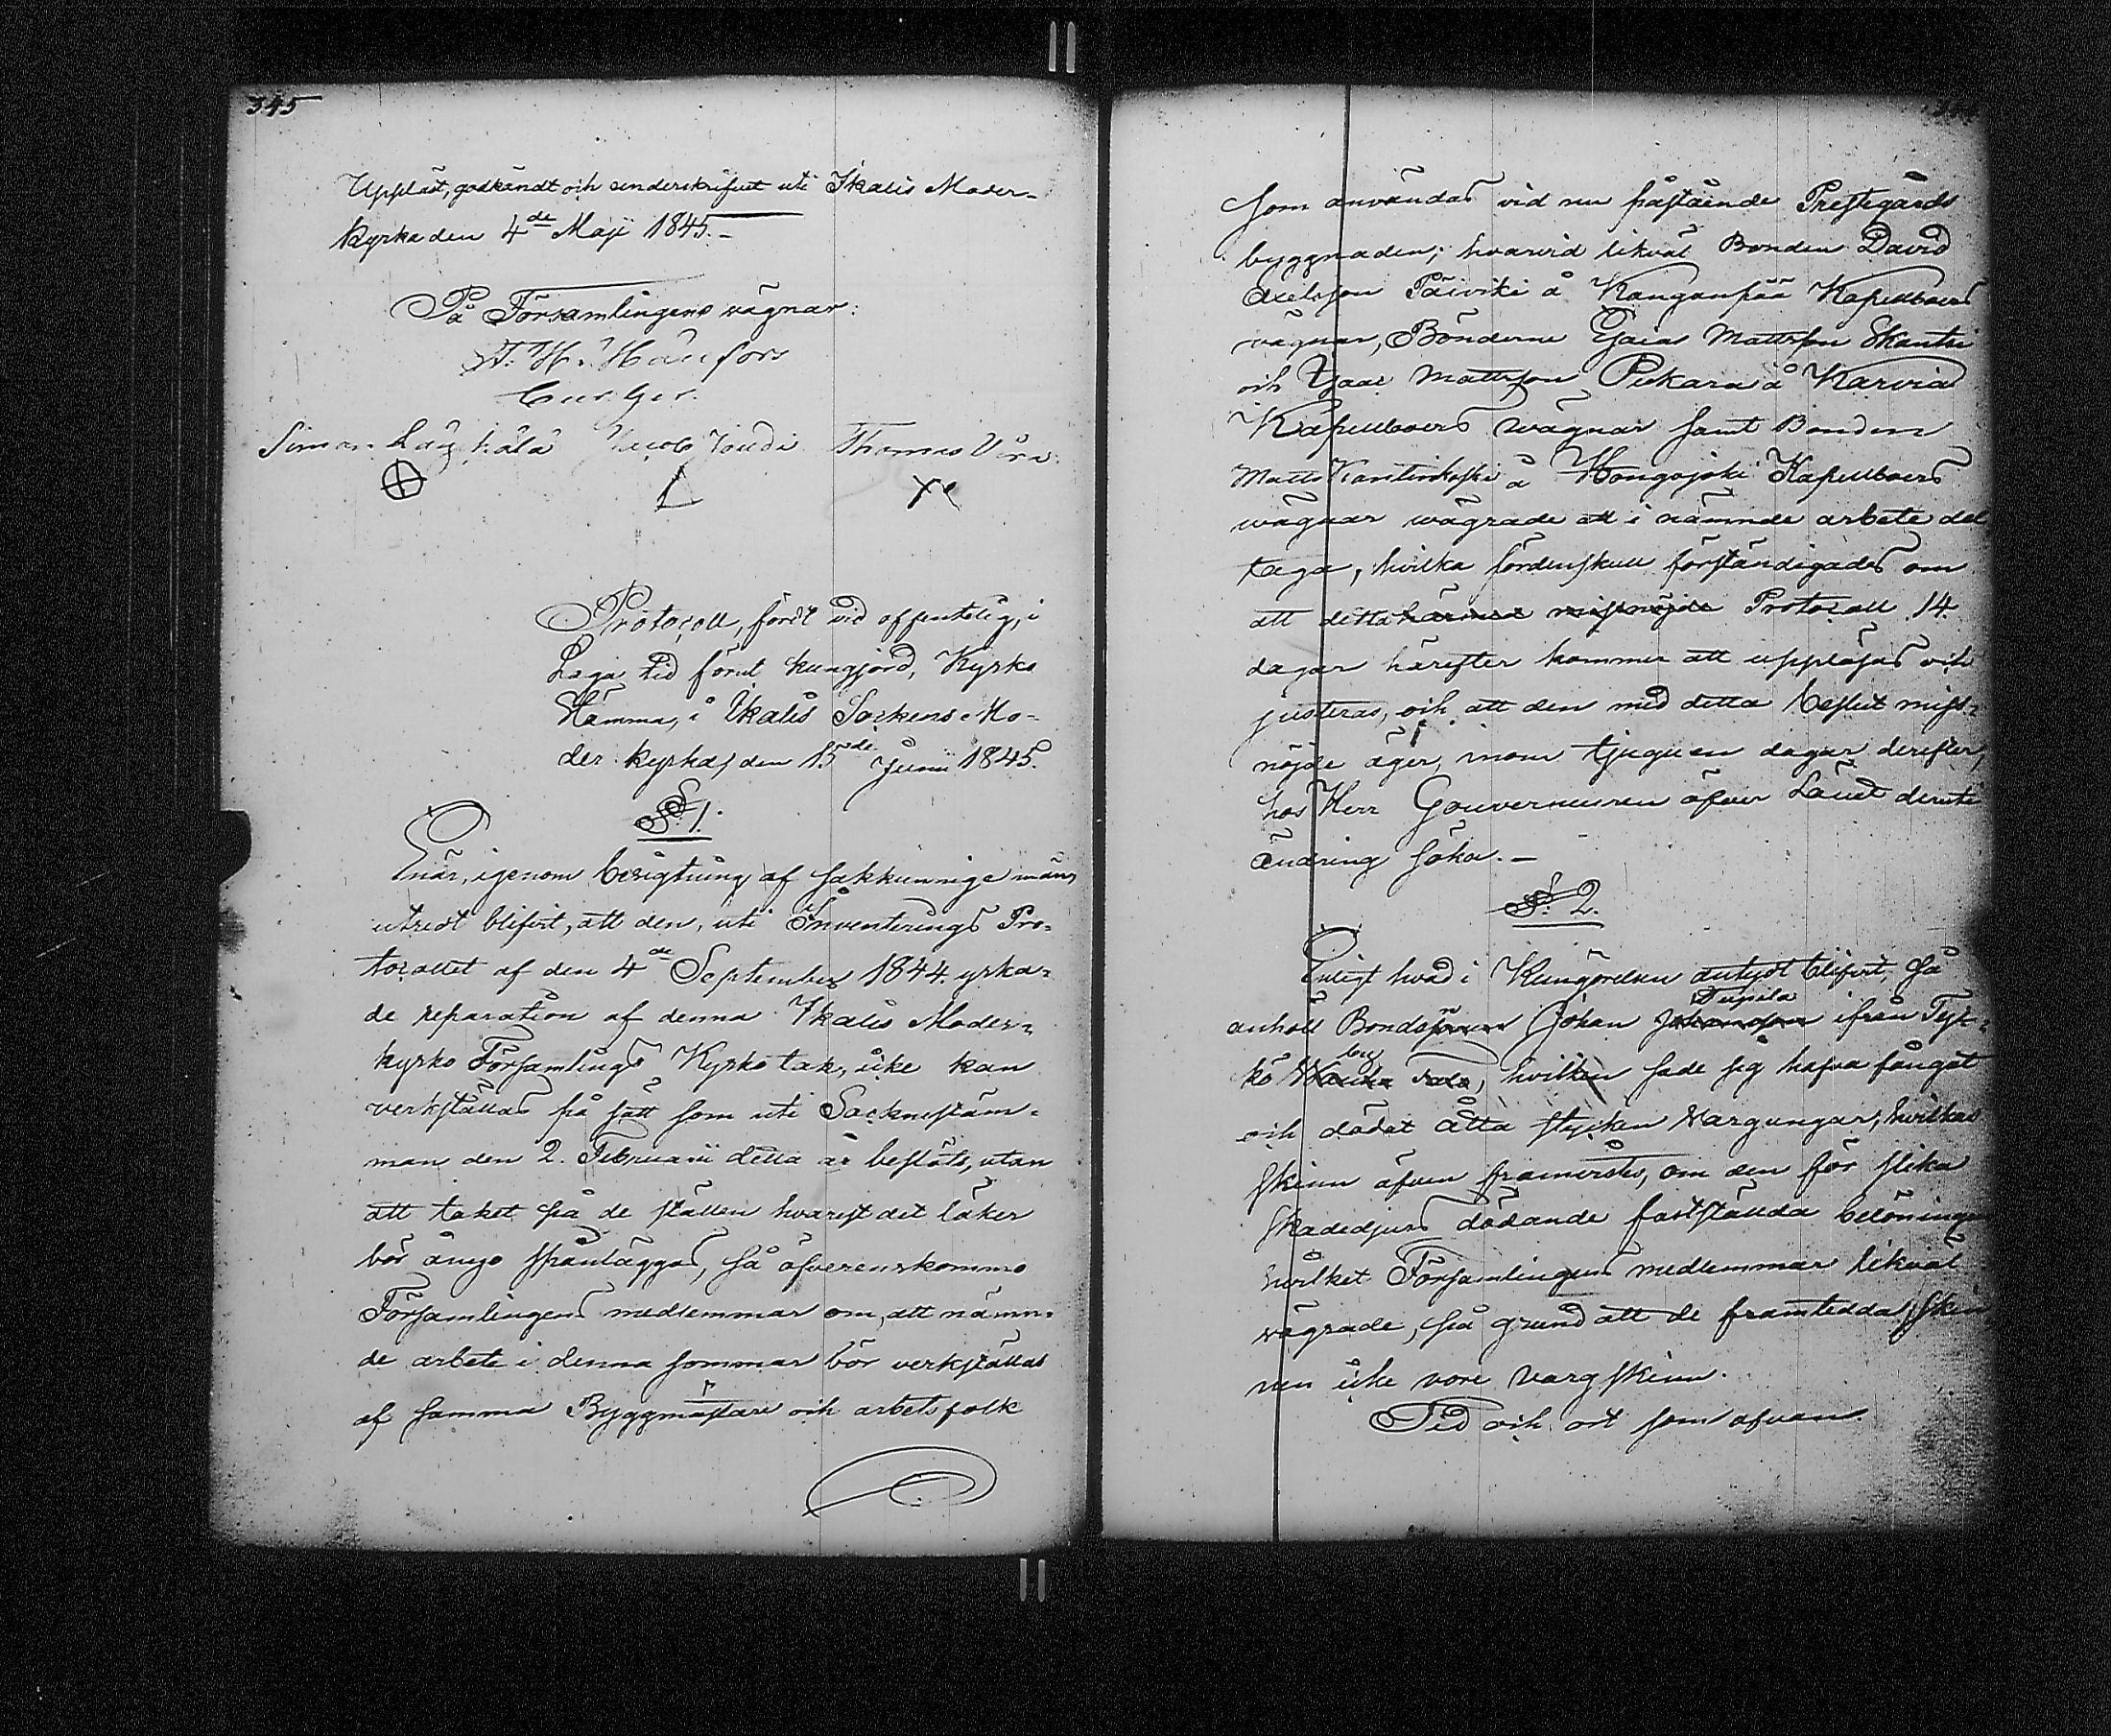 345
Uppläst, godkändt och underskrifvit uti Ikalis Moder-
kyrka den 4de Maji 1845.-
På Församlingens vägnar:
Simon Jacob Joudi Thomas
Protocoll, fördt vid offentelig, i
Laga tid förut kungjord, Kyrko
Stämma, i Ikalis Sockens Mo-
der kyrka, den 15de Junii 1845.
§ 1.
Enär, igenom besigtning af sakkunnige män,
utredt blifvit, att den, uti Inventerings Pro-
tocollet af den 4de September 1844. yrka-
de reparation af denna Ikalis Moder-
kyrko Församlings Kyrko tak, icke kan
verkställas på sätt som uti Sockenstäm-
man den 2. Februarii detta år beslöts, utan
att taket på de ställen hvarest det läker
bör ånyo spånläggas, så öfverenskommo
Församlingens medlemmar om, att nämn-
de arbete i denna sommar bör verkställas
af samma Byggmästare och arbetsfolk
som användas vid nu påstående Prestegårds
byggnaden; hvarvid likväl Bonden David
Axelsson Päiviki å Kanganpää Kapellboers
vägnar, Bönderne Esaias Mattsson Skantsi
och Isaac Mattsson Pekara å Karvia
Kapellboers vägnar samt Bonden
Matts Kantinkoski å Hongojoki Kapellboers
vägnar vägrade att i nämnde arbete del
taga, hvilka fördenskull förständigades om
att detta härmed missnöjde Protocoll 14
dagar härefter kommer att uppläsas och
justeras, och att den med detta beslut miss-
nöjde äger, inom tjuguen dagar derefter,
hos Herr Gouverneuren öfver Länet deruti
ändring söka.-
§ 2.
Enligt hvad i Kungörelsen antydt blifvit, så
Tupila
anhöll Bondesonen Johan Johansson ifrån Tyk-
by
kö hvilken sade sig hafva fångat
och dödat åtta stycken Vargungar, hvilkas
skinn äfven framvistes, om den för slika
skadedjurs dödande fastställda belöningen
hvilket Församlingens medlemmar likväl
vägrade, på grund att de framtedda skin
nen icke vore Vargskinn.
Tid och ort som ofvan.